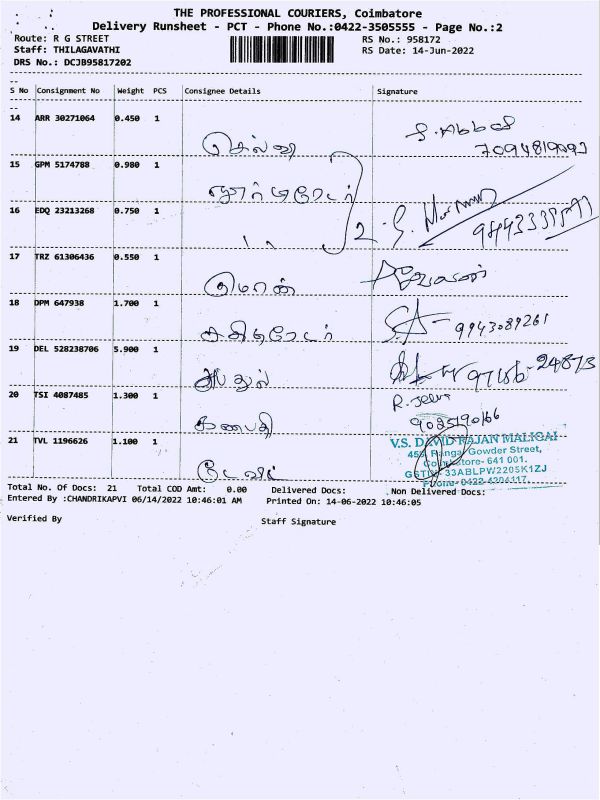 THE PROFESSIONAL COURIERS, Coimbatore
Delivery Runsheet - PCT - Phone No.:0422-3505555 - Page No.:2
Route: R G STREET RS No.: 958172
Staff: THILAGAVATHI RS Date: 14-Jun-2022
DRS No.: DCJB95817202
S No Consignment No Weight PCS Consignee Details Signature
14 ARR 30271064 0.450 1
செல்வி 7094819092
15 GPM 5174788 0.980 1
16 EDQ 23213268 0.750 1
2
17 TRZ 61306436 0.550 1
மொஸ்
18 DPM 647938 1.700 1
S.A 9943089261
19 DEL 528238706 5.900 1
அப்துல்
20 TSI 4087485 1.300 1 R.
கணபதி
21 TVL 1196626 1.100 1 V.S. DAVID RAJAN MALIGAI
Gowder Street,
Coimbatore- 641 001.
டேவிட் GSTIN- 33ABLPW2205K1ZJ
Phone- 0422-4304117
Total No. Of Docs: 21 Total COD Amt: 0.00 Delivered Docs: Non Delivered Docs:
Entered By :CHANDRIKAPVI 06/14/2022 10:46:01 AM Printed On: 14-06-2022 10:46:05
Verified By Staff Signature